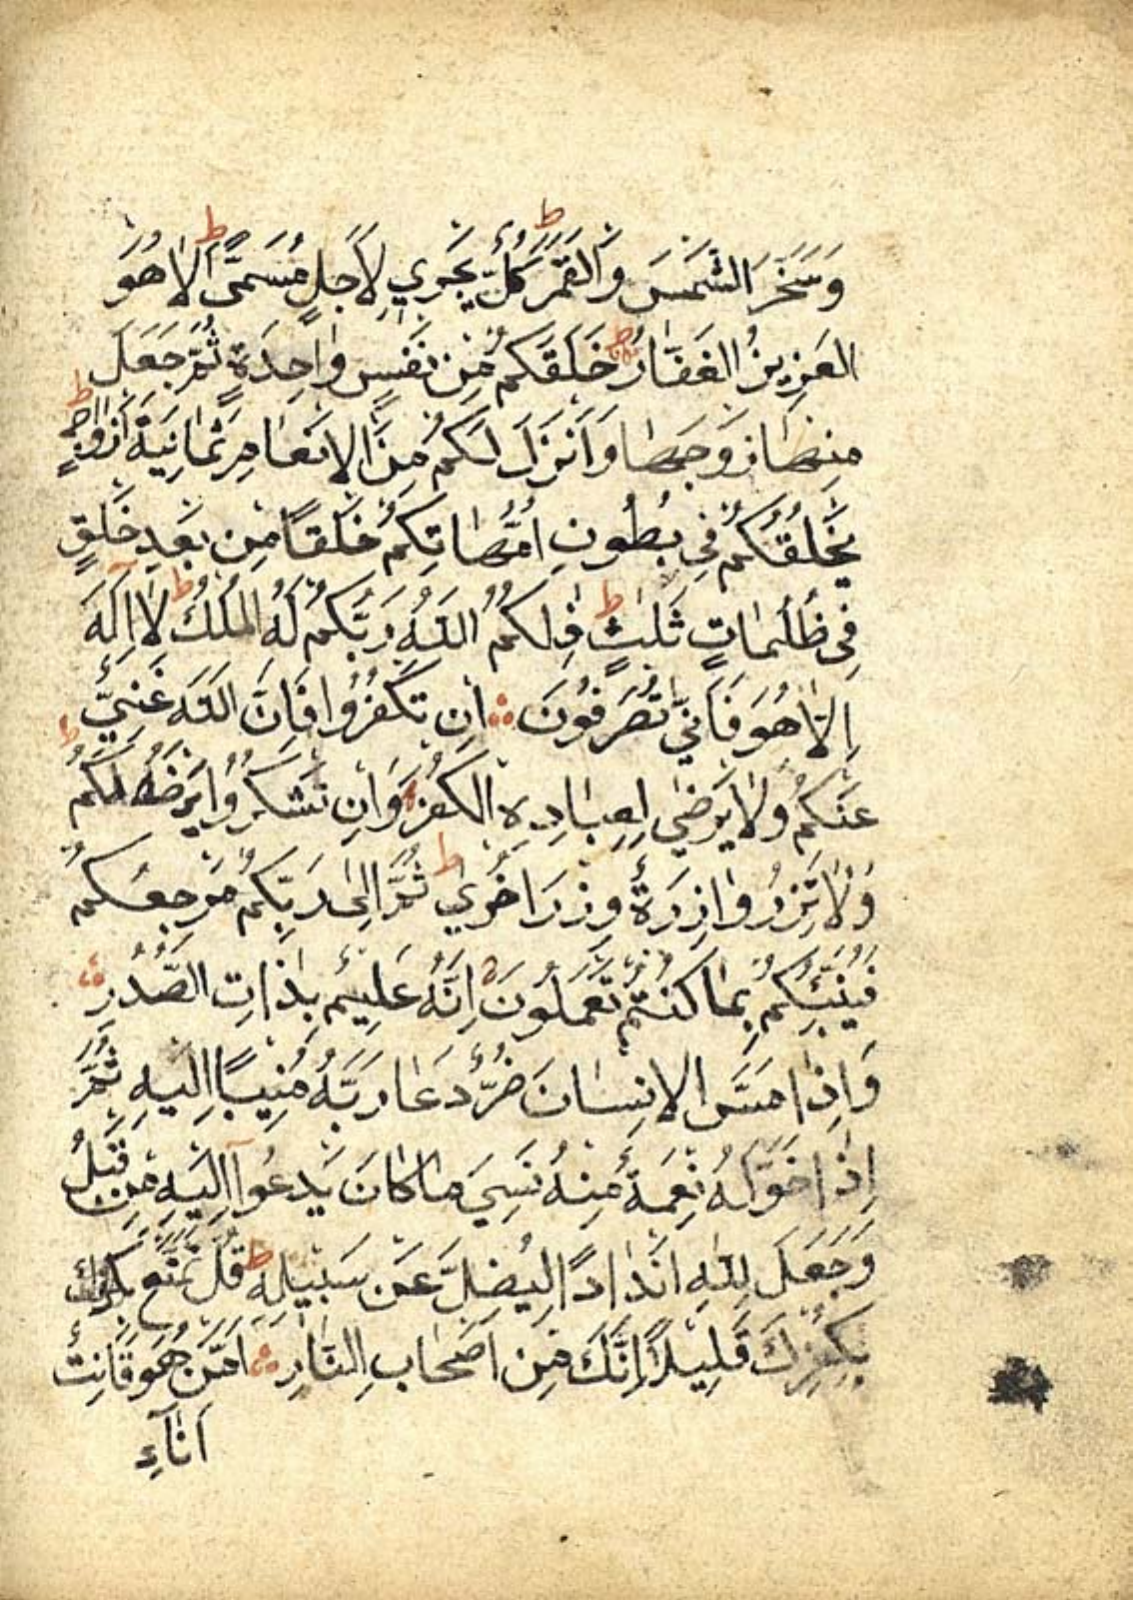 وَسَخَّرَ الشَّمْسَ وَالْقَمَرَ ط كُلٌّ يَجْرِي لِاَجَلٍ مُسَمًّى ط اَلَا هُوَ
الْعَزِيزُ الْغَفَّارُ خَلَقَكُمْ مِنْ نَفْسٍ وَاحِدَةٍ ثُمَّ جَعَلَ
مِنْهَا زَوْجَهَا وَاَنْزَلَ لَكُمْ مِنَ الْاَنْعَامِ ثَمَانِيَةَ اَزْوَاجٍ ط
يَخْلُقُكُمْ فِي بُطُونِ اُمَّهَاتِكُمْ خَلْقًا مِنْ بَعْدِ خَلْقٍ
فِي ظُلُمَاتٍ ثَلٰثٍ ط ذٰلِكُمُ اللّٰهُ رَبُّكُمْ لَهُ الْمُلْكُ ط لَا اِلٰهَ
اِلَّا هُوَ فَاَنّٰى تُصْرَفُونَ اِنْ تَكْفُرُوا فَاِنَّ اللّٰهَ غَنِيٌّ
عَنْكُمْ وَلَا يَرْضٰى لِعِبَادِهِ الْكُفْرَ وَاِنْ تَشْكُرُوا يَرْضَهُ لَكُمْ ط
وَلَا تَزِرُ وَازِرَةٌ وِزْرَ اُخْرٰى ط ثُمَّ اِلٰى رَبِّكُمْ مَرْجِعُكُمْ
فَيُنَبِّئُكُمْ بِمَا كُنْتُمْ تَعْمَلُونَ اِنَّهُ عَلِيمٌ بِذَاتِ الصُّدُرِ
وَاِذَا مَسَّ الْاِنْسَانَ ضُرٌّ دَعَا رَبَّهُ مُنِيبًا اِلَيْهِ ثُمَّ
اِذَا خَوَّلَهُ نِعْمَةً مِنْهُ نَسِيَ مَا كَانَ يَدْعُوٓا اِلَيْهِ مِنْ قَبْلُ
وَجَعَلَ لِلّٰهِ اَنْدَادًا لِيُضِلَّ عَنْ سَبِيلِهِ ط قُلْ تَمَتَّعْ بِكُفْرِكَ
بِكُفْرِكَ قَلِيلًا اِنَّكَ مِنْ اَصْحَابِ النَّارِ اَمَّنْ هُوَ قَانِتٌ
اٰنَآءِ